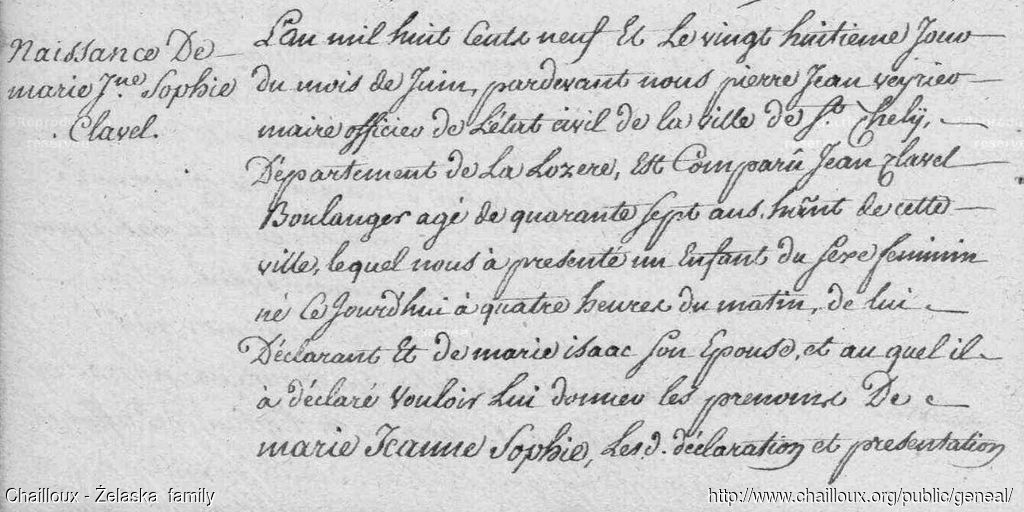 Naissance De
marie Jne. Sophie
Clavel.
L'an mil huit Cents neuf Et Le vingt huitieme Jour
du mois de Juin, pardevant nous pierre Jean veyrier
maire officier de L'état civil de la ville de St. Chely,
Département de La Lozere, Est Comparû Jean Clavel
Boulanger agé de quarante sept ans, hãnt de cette
ville, lequel nous à presenté un Enfant du sexe feminin
né Ce Jourd'hui à quatre heures du matin, de lui
Déclarant Et de marie isaac son Epouse, et au quel il
à déclaré vouloir Lui donner les prenoms De
marie Jeanne Sophie, Les d. déclaration et presentation
Chailloux - Želaska family
http://www.chailloux.org/public/geneal/